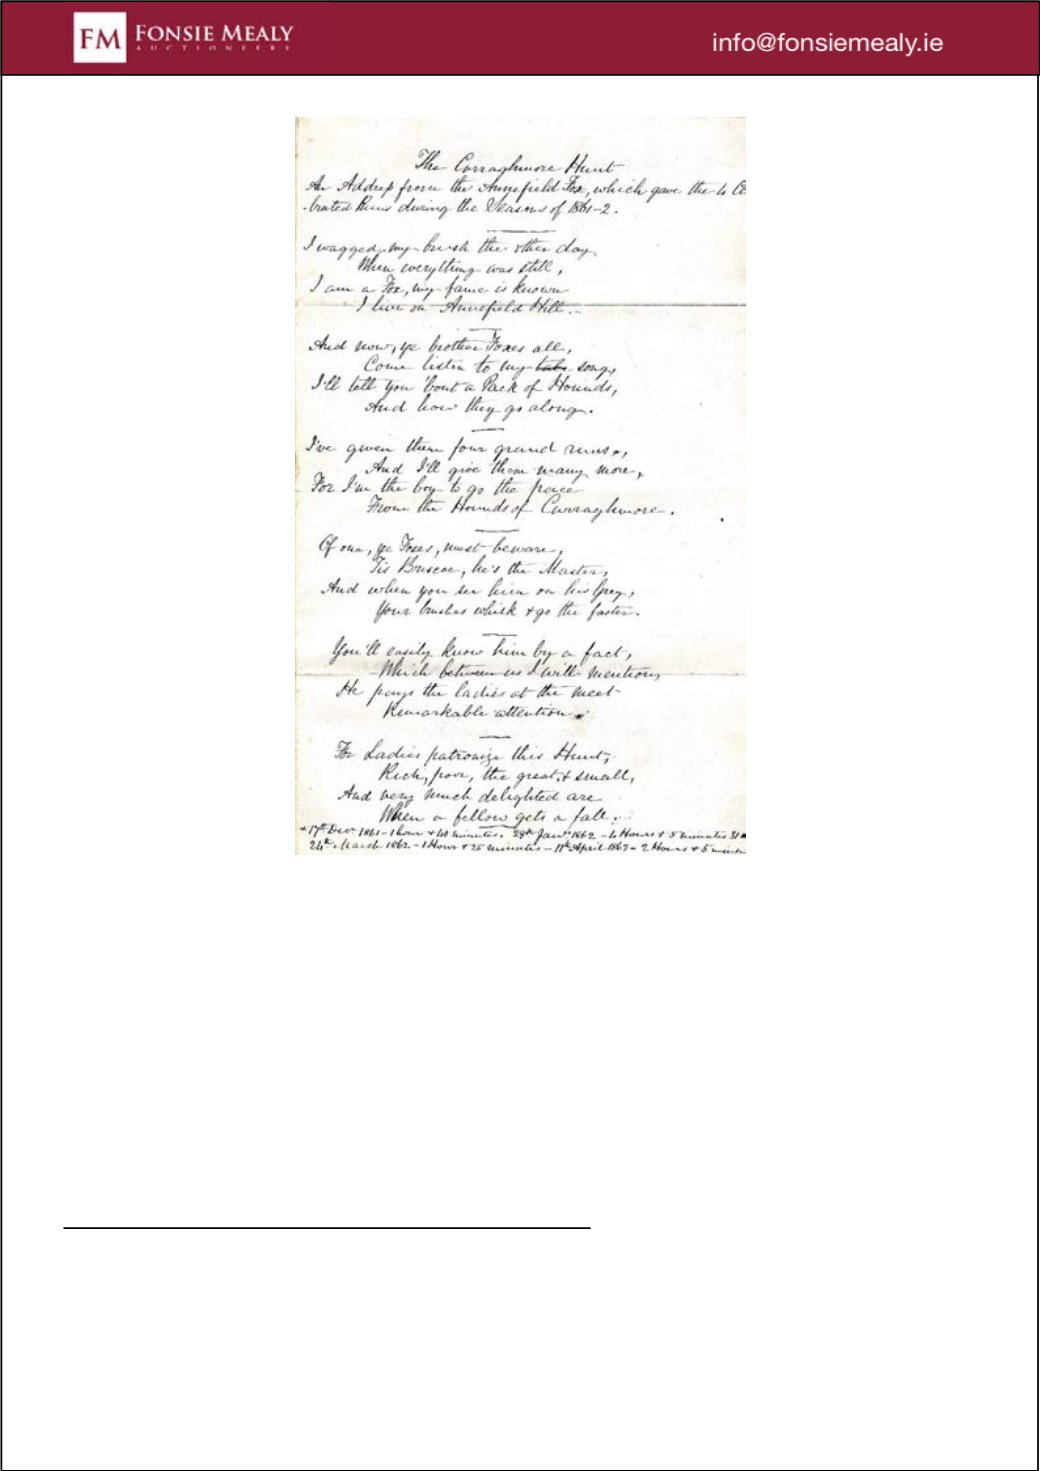 FM FONSIE MEALY
AUCTIONEERS
info@fonsiemealy.ie
The Curraghmore Hunt
An Address from the Annefield Fox, which gave the 4 Ce
-brated Runs during the Seasons of 1861-2.
I wagged my brush the other day
When everything was still,
I am a Fox, my fame is known
I live on Annefield Hill.
And now, ye brother Foxes all,
Come listen to my song,
I'll tell you 'bout a Pack of Hounds,
And how they go along.
I've given them four grand runs,
And I'll give them many more,
For I'm the boy to go the pace
From the Hounds of Curraghmore.
Of one, ye Foxes, must beware,
Tis Briscoe, he's the Master,
And when you see him on his Grey,
Your brushes whisk & go the faster.
You'll easily know him by a fact,
Which between us I will mention,
He pays the ladies at the meet
Remarkable attention.
For Ladies patronize this Hunt,
Rich, poor, the great, & small,
And very much delighted are
When a fellow gets a fall.
17th Decr 1861 - 1 hour & 40 minutes. 29th Jany 1862 - 4 Hours & 5 minutes
24th March 1862 - 1 Hour & 25 minutes - 11th April 1862 - 2 Hours & 5 minu